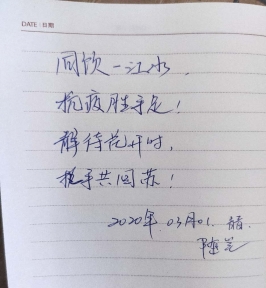 DATE：日期
同饮一江水，
抗疫胜手足！
静待花开时，
携手共回苏！
2020年 03月01.